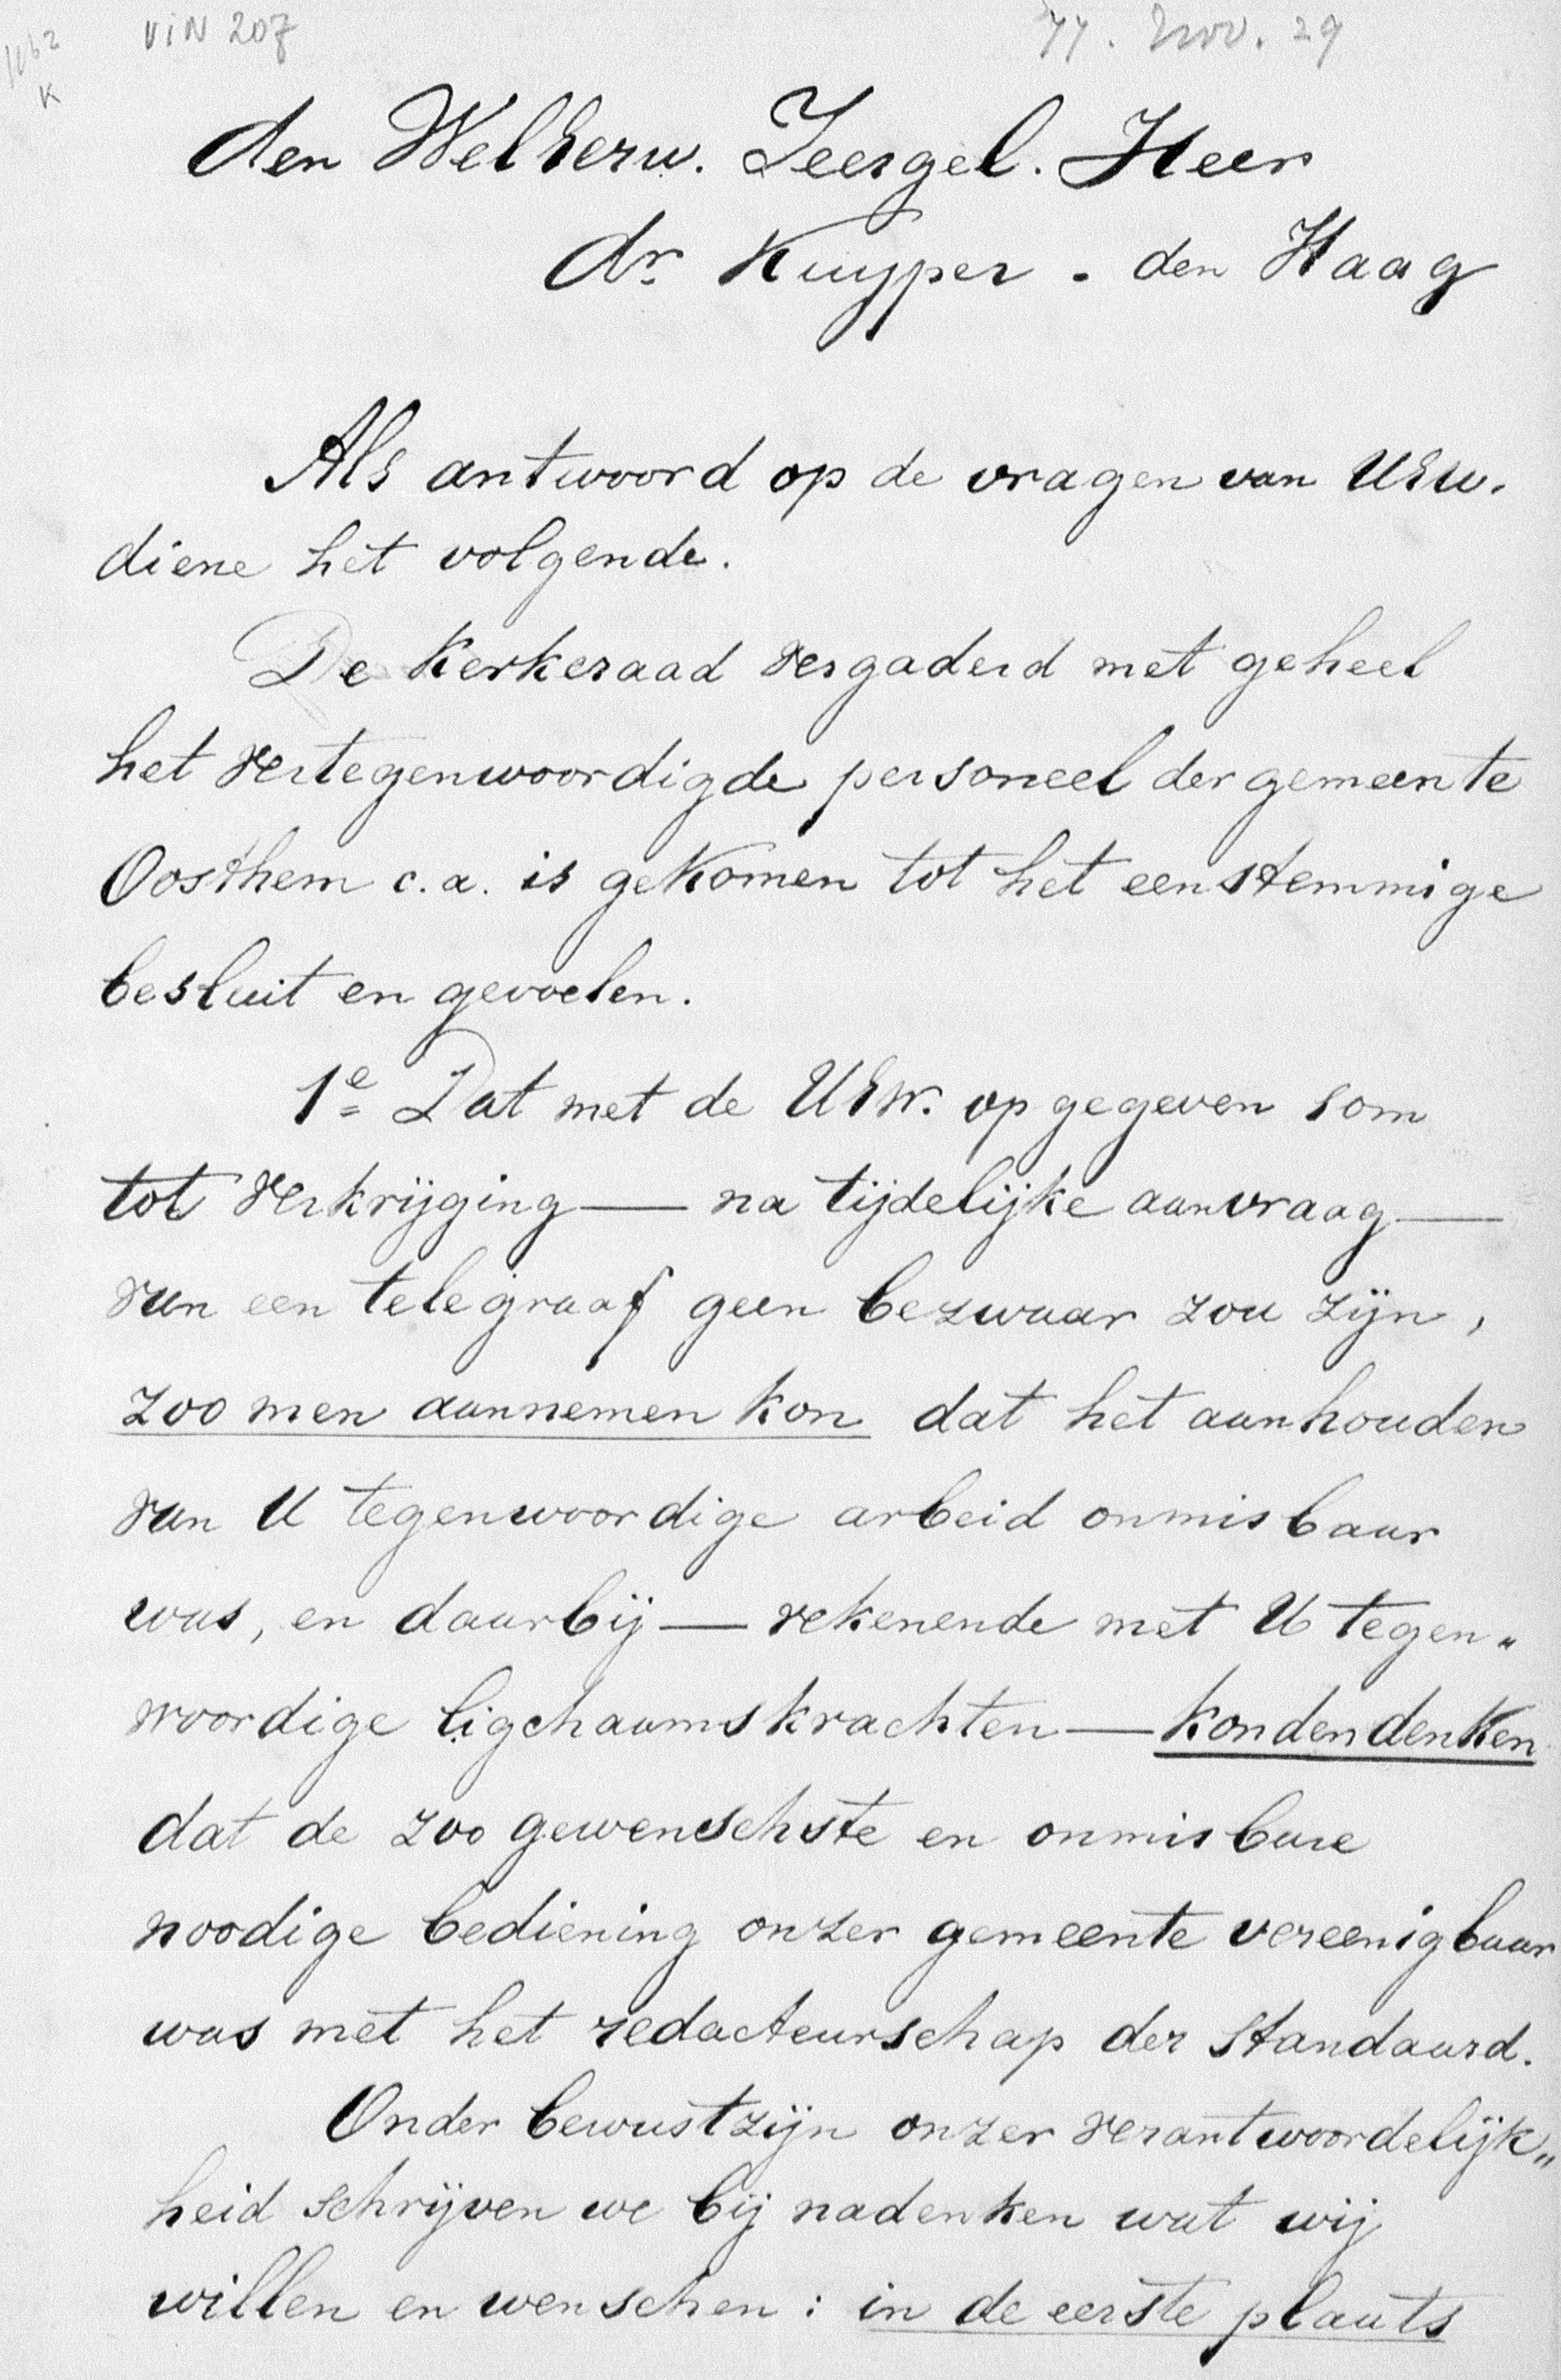 VIN 207
77. Nov. 29
K
den WelEerw. Zeergel. Heer
dr. Kuyper. den Haag
Als antwoord op de vragen van UEw.
diene het volgende.
De Kerkeraad vergaderd met geheel
het vertegenwoordigde personeel der gemeente
Oosthem c.a. is gekomen tot het eenstemmige
besluit en gevoelen.
1e Dat met de UEw. opgegeven som
tot verkrijging — na tijdelijke aanvraag —
van een telegraaf geen bezwaar zou zijn,
zoo men aannemen kon dat het aanhouden
van U tegenwoordige arbeid onmisbaar
was, en daarbij — rekenende met U tegen„
woordige ligchaamskrachten — konden denken
dat de zoo gewenschste en onmisbare
noodige bediening onzer gemeente vereenigbaar
was met het redacteurschap der Standaard.
Onder bewustzijn onzer verantwoordelijk„
heid schrijven we bij nadenken wat wij
willen en wenschen: in de eerste plaats